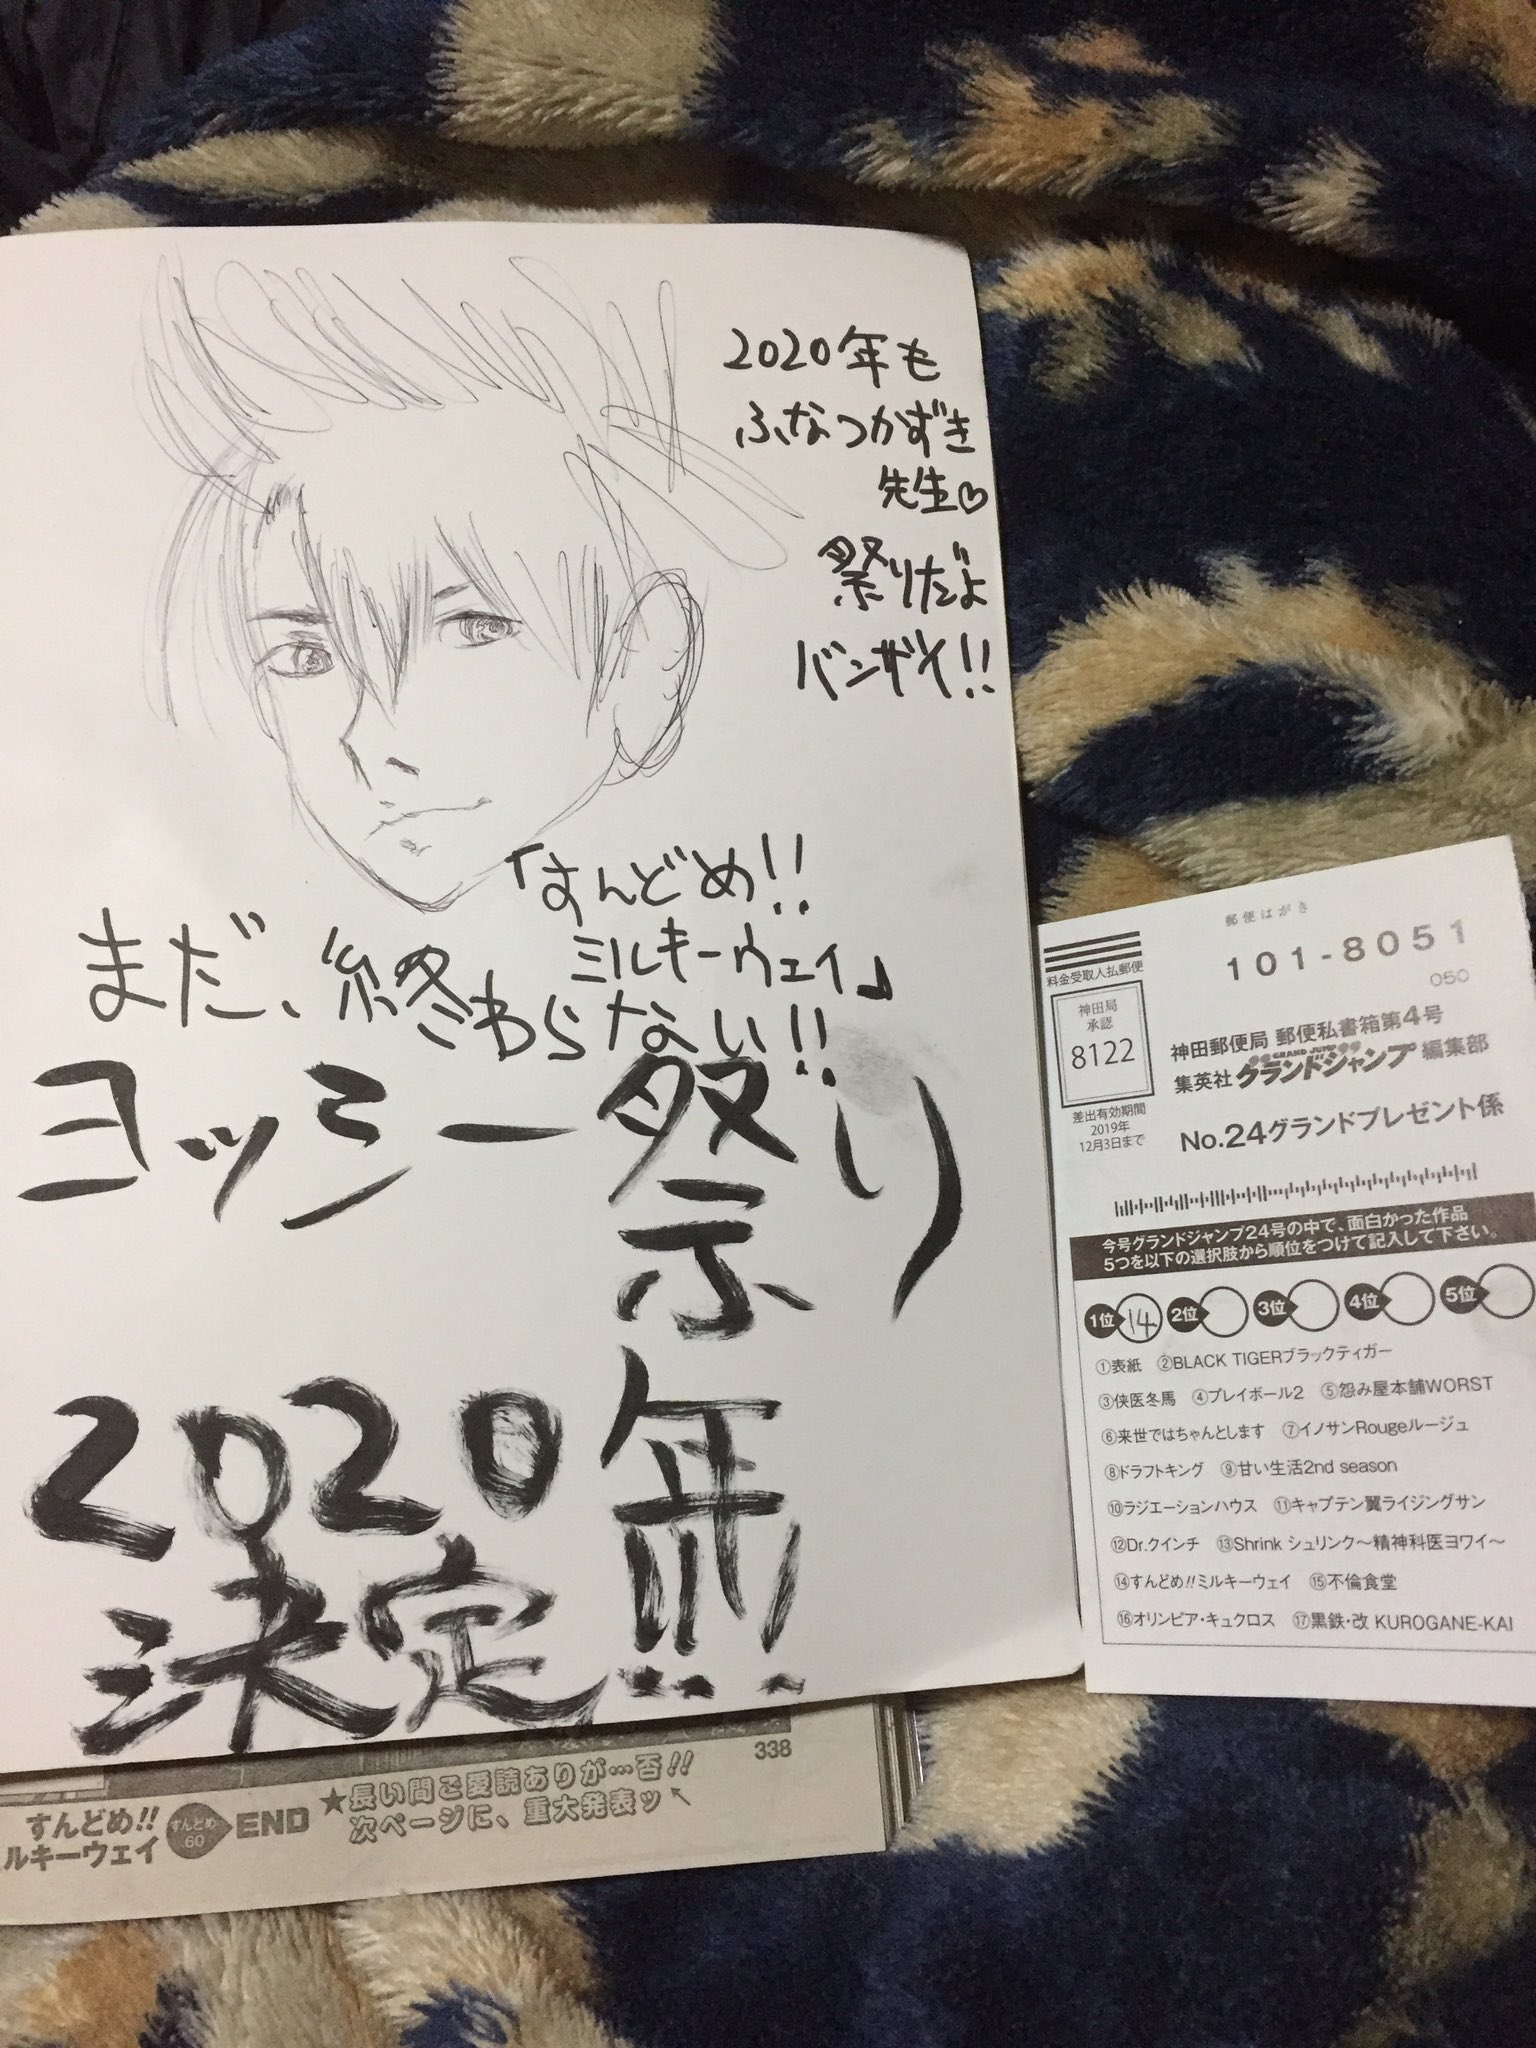 2020年も
ふなつかずき
先生♡
祭りだよ
バンザイ!!
「すんどめ!!
ミルキーウェイ」
まだ、終わらない!!
ヨッシー祭り
2020年!!!
決定
338
★長い間ご愛読ありが…否!!
次ページに、重大発表ッ
すんどめ!!
ルキーウェイ
すんどめ
60
END
郵便はがき
101-8051
050
料金受取人払郵便
神田局
承認
8122
差出有効期間
2019年
12月3日まで
神田郵便局 郵便私書箱第4号
GRAND JUMP
集英社 グランドジャンプ 編集部
No.24グランドプレゼント係
今号グランドジャンプ24号の中で、面白かった作品
5つを以下の選択肢から順位をつけて記入して下さい。
1位 14 2位 3位 4位 5位
①表紙 ②BLACK TIGERブラックティガー
③侠医冬馬 ④プレイボール2 ⑤怨み屋本舗WORST
⑥来世ではちゃんとします ⑦イノサンRougeルージュ
⑧ドラフトキング ⑨甘い生活2nd season
⑩ラジエーションハウス ⑪キャプテン翼ライジングサン
⑫Dr.クインチ ⑬Shrink シュリンク〜精神科医ヨワイ〜
⑭すんどめ!!ミルキーウェイ ⑮不倫食堂
⑯オリンピア・キュクロス ⑰黒鉄・改 KUROGANE-KAI